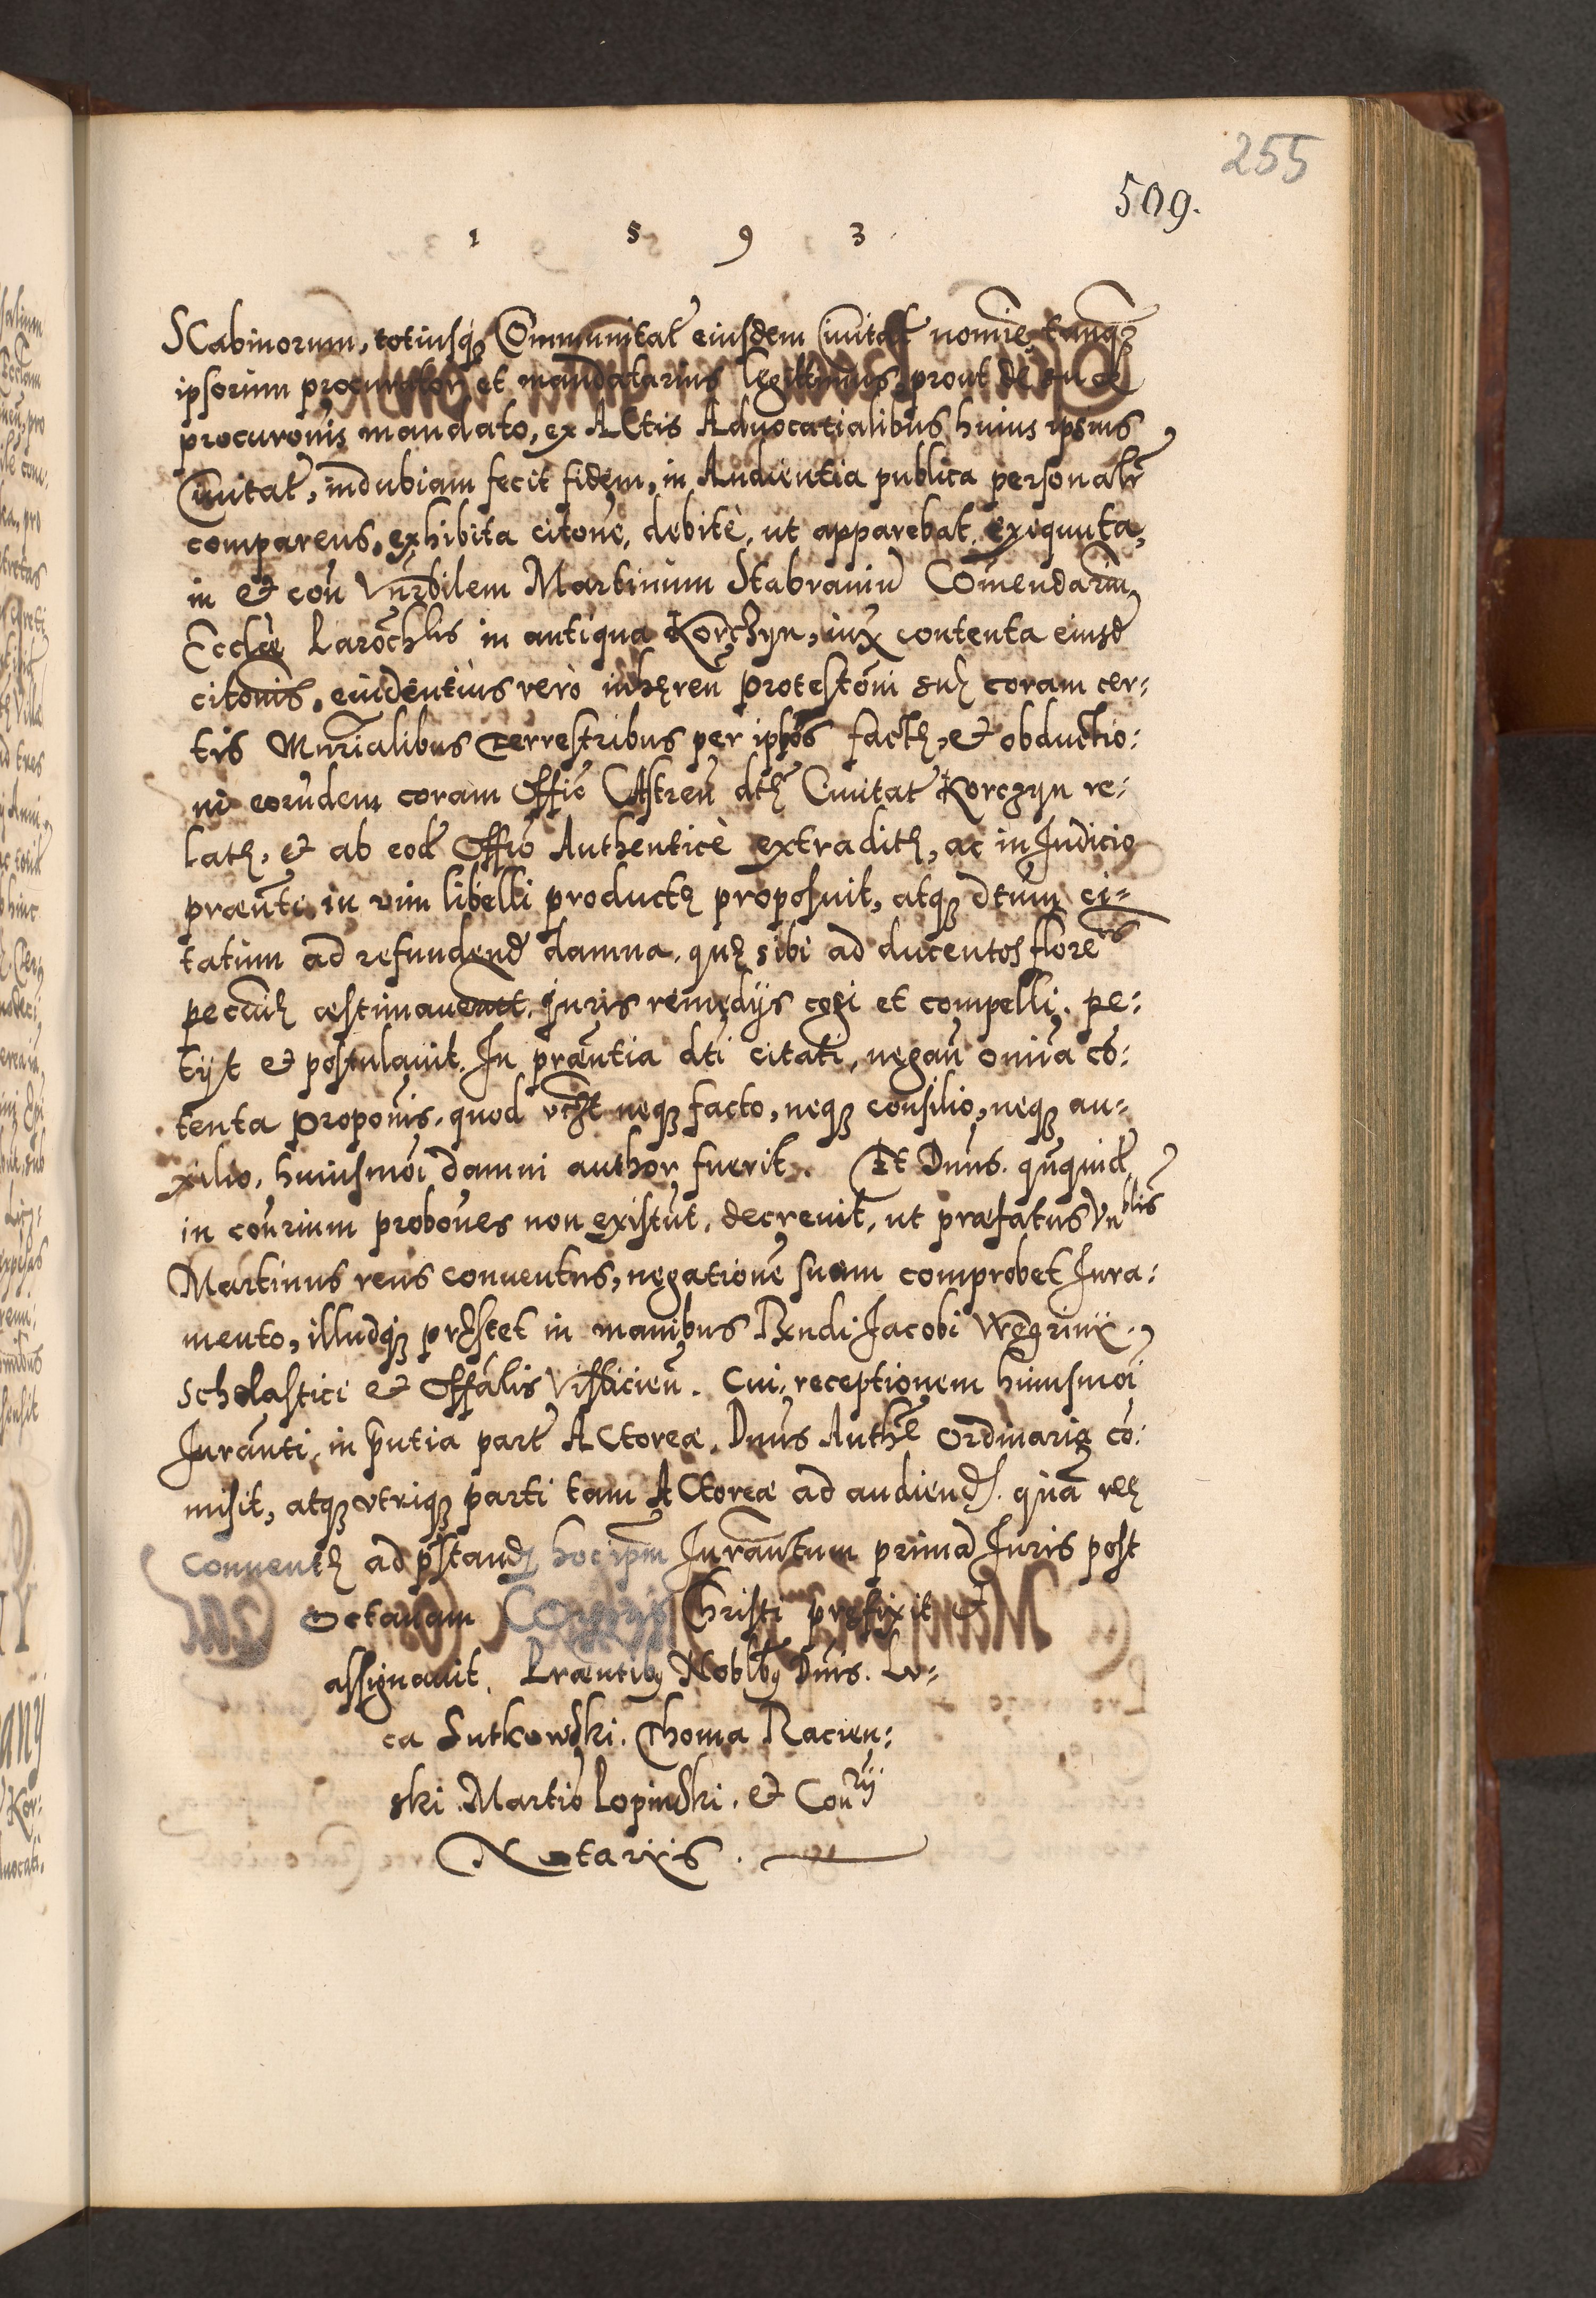 255
509.
1 5 9 3
Scabinorum, totiusq; Communitat eiusdem Ciuitat nomie, tanq;
ipsorum procurator et mandatarius legittimus, prout de suae
procuronis mandato, ex Actis Aduocatialibus huius ipsius
Ciuitat, indubiam fecit fidem, in Audientia publica personalr
comparens, exhibita citone, debitè, ut apparebat, exequuta,
in & con Vnrbilem Martinum Stabrauiu Comendarm
Ecclae Parochlis in antiqua Korczyn, iux contenta eiusd
citonis, euidentius verò inhęren protestoni suę coram cer:
tis Mnrialibus Terrestribus per ipsos factę, & obductio:
ni eorudem coram Offio Castren dtę Ciuitat Korczyn re:
latę, & ab eod Offio Authenticè extraditę, ac in Judicio
praenti in vim libelli productę proposuit, atq; dtum ci=
tatum ad refundend damna, quę sibi ad ducentos flore
pecuię aestimauerut, Juris remedijs cogi et compelli, pe:
tijt & postulauit. In praentia dti citati, negan omia co:
tenta proponis, quod vczt neq; facto, neq; consilio, neq; au=
xilio, huiusmoi damni author fuerit. Et Dnus. qnquid
in conrium probones non existut, decreuit, ut praefatus Vnblis
Martinus reus conuentus, negatione suam comprobet Jura:
mento, illudq; pręstet in manibus Rxndi Jacobi Węgrinii
Scholastici & Offalis Visslicien. Cui, receptionem huiusmoi
Juranti, in pntia part Actoreae, Dnus Authe Ordinaria co:
misit, atq; vtriq; parti tam Actoreae ad audiend. qua reę
conuentę ad pstand hoc ipm Jurantum prima Juris post
octauam Corporis Christi prefixit &
assignauit. Praentibq Noblbq Dnis. Lu=
ca Sutkowski. Thoma Racien:
ski. Martio Lopinski. & Conrij
Notariis.